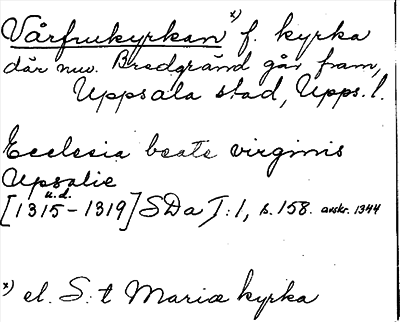 Vårfrukyrkan x) f. kyrka
där nuv. Bredgränd går fram,
Uppsala stad, Upps. l.
Ecclesia beate virginis
Upsalie
u.d.
[1315-1319] SDa I:1, s. 158. avskr. 1344
x) el. S:t Mariæ kyrka